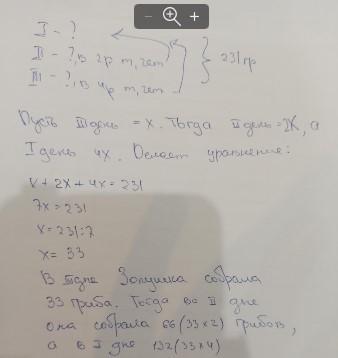 I - ?
II - ?, в 2р m, чем
III - ?, в 4р m, чем
231 гр
Пусть III день = x. Тогда II день = 2X, а
I день 4x. Делаем уравнение:
x + 2x + 4x = 231
7x = 231
x = 231:7
x = 33
В III дне Золушка собрала
33 гриба. Тогда во II дне
она собрала 66 (33×2) грибов,
а в I дне 132 (33×4)